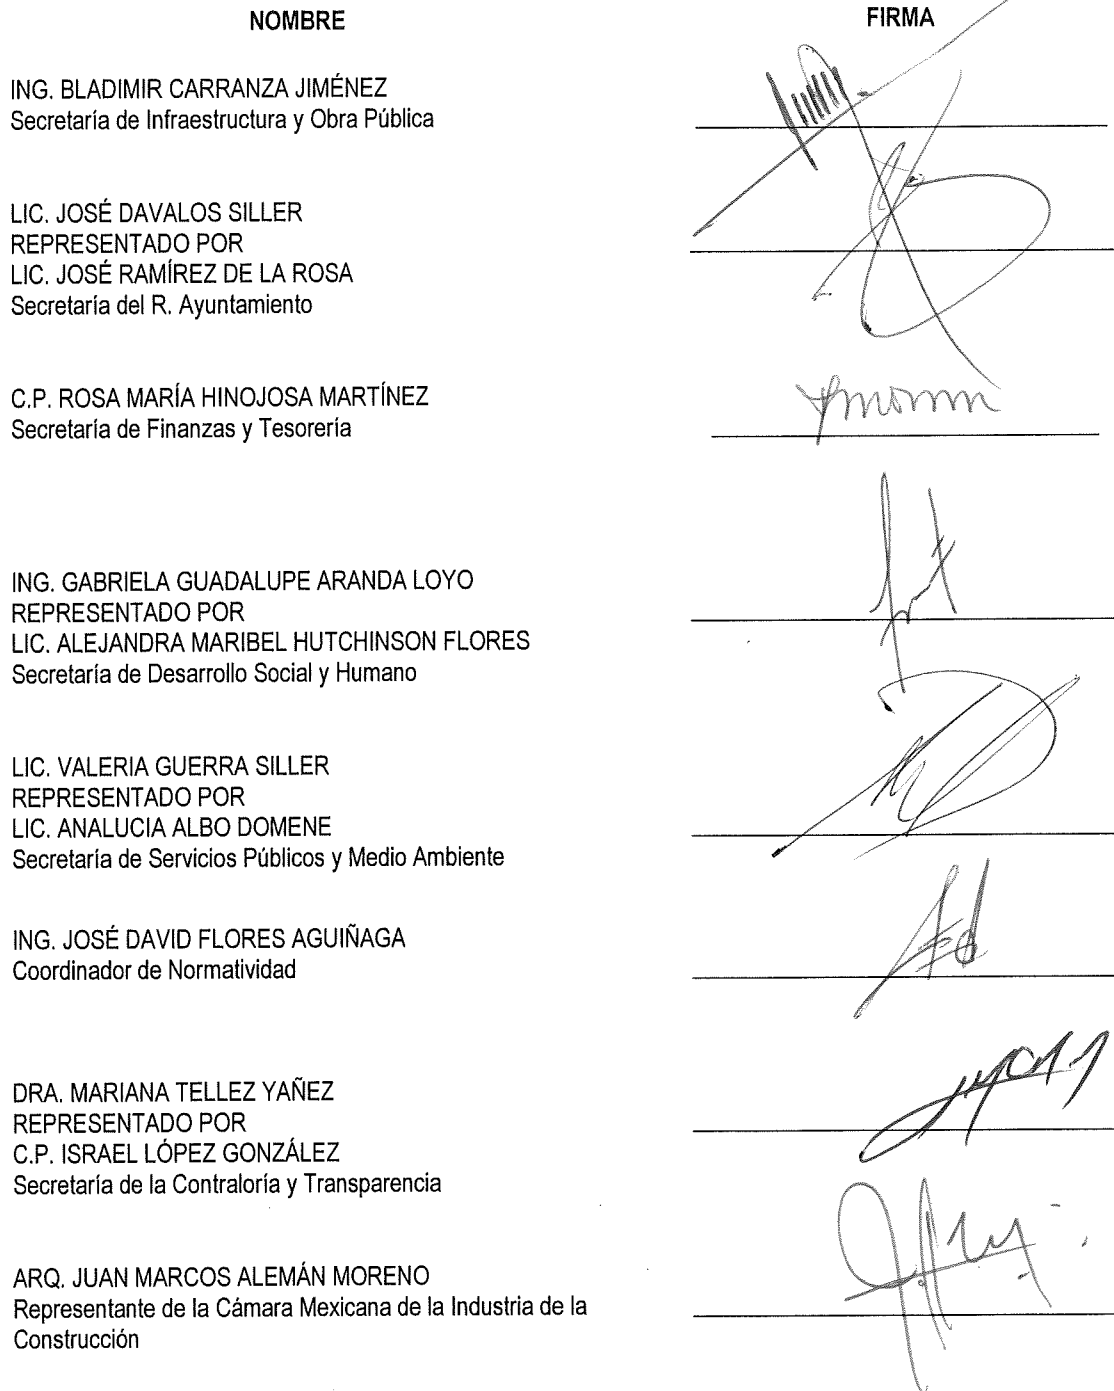 NOMBRE FIRMA
ING. BLADIMIR CARRANZA JIMÉNEZ
Secretaría de Infraestructura y Obra Pública
LIC. JOSÉ DAVALOS SILLER
REPRESENTADO POR
LIC. JOSÉ RAMÍREZ DE LA ROSA
Secretaría del R. Ayuntamiento
C.P. ROSA MARÍA HINOJOSA MARTÍNEZ
Secretaría de Finanzas y Tesorería
ING. GABRIELA GUADALUPE ARANDA LOYO
REPRESENTADO POR
LIC. ALEJANDRA MARIBEL HUTCHINSON FLORES
Secretaría de Desarrollo Social y Humano
LIC. VALERIA GUERRA SILLER
REPRESENTADO POR
LIC. ANALUCIA ALBO DOMENE
Secretaría de Servicios Públicos y Medio Ambiente
ING. JOSÉ DAVID FLORES AGUIÑAGA
Coordinador de Normatividad
DRA. MARIANA TELLEZ YAÑEZ
REPRESENTADO POR
C.P. ISRAEL LÓPEZ GONZÁLEZ
Secretaría de la Contraloría y Transparencia
ARQ. JUAN MARCOS ALEMÁN MORENO
Representante de la Cámara Mexicana de la Industria de la
Construcción